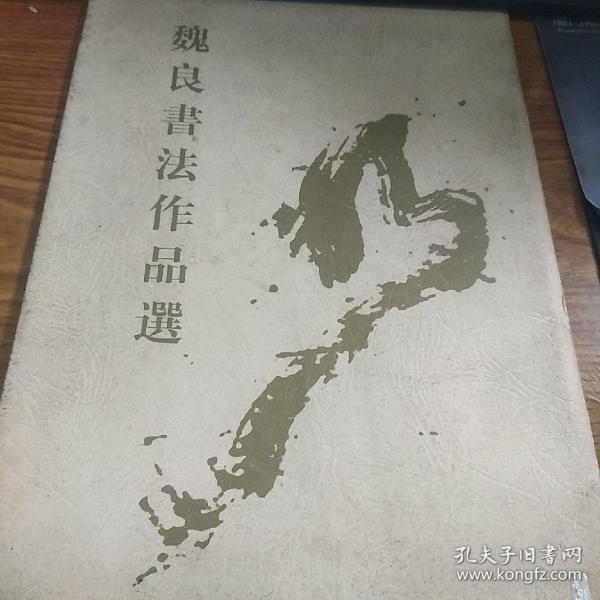 魏良書法作品選
孔夫子旧书网
www.kongfz.com